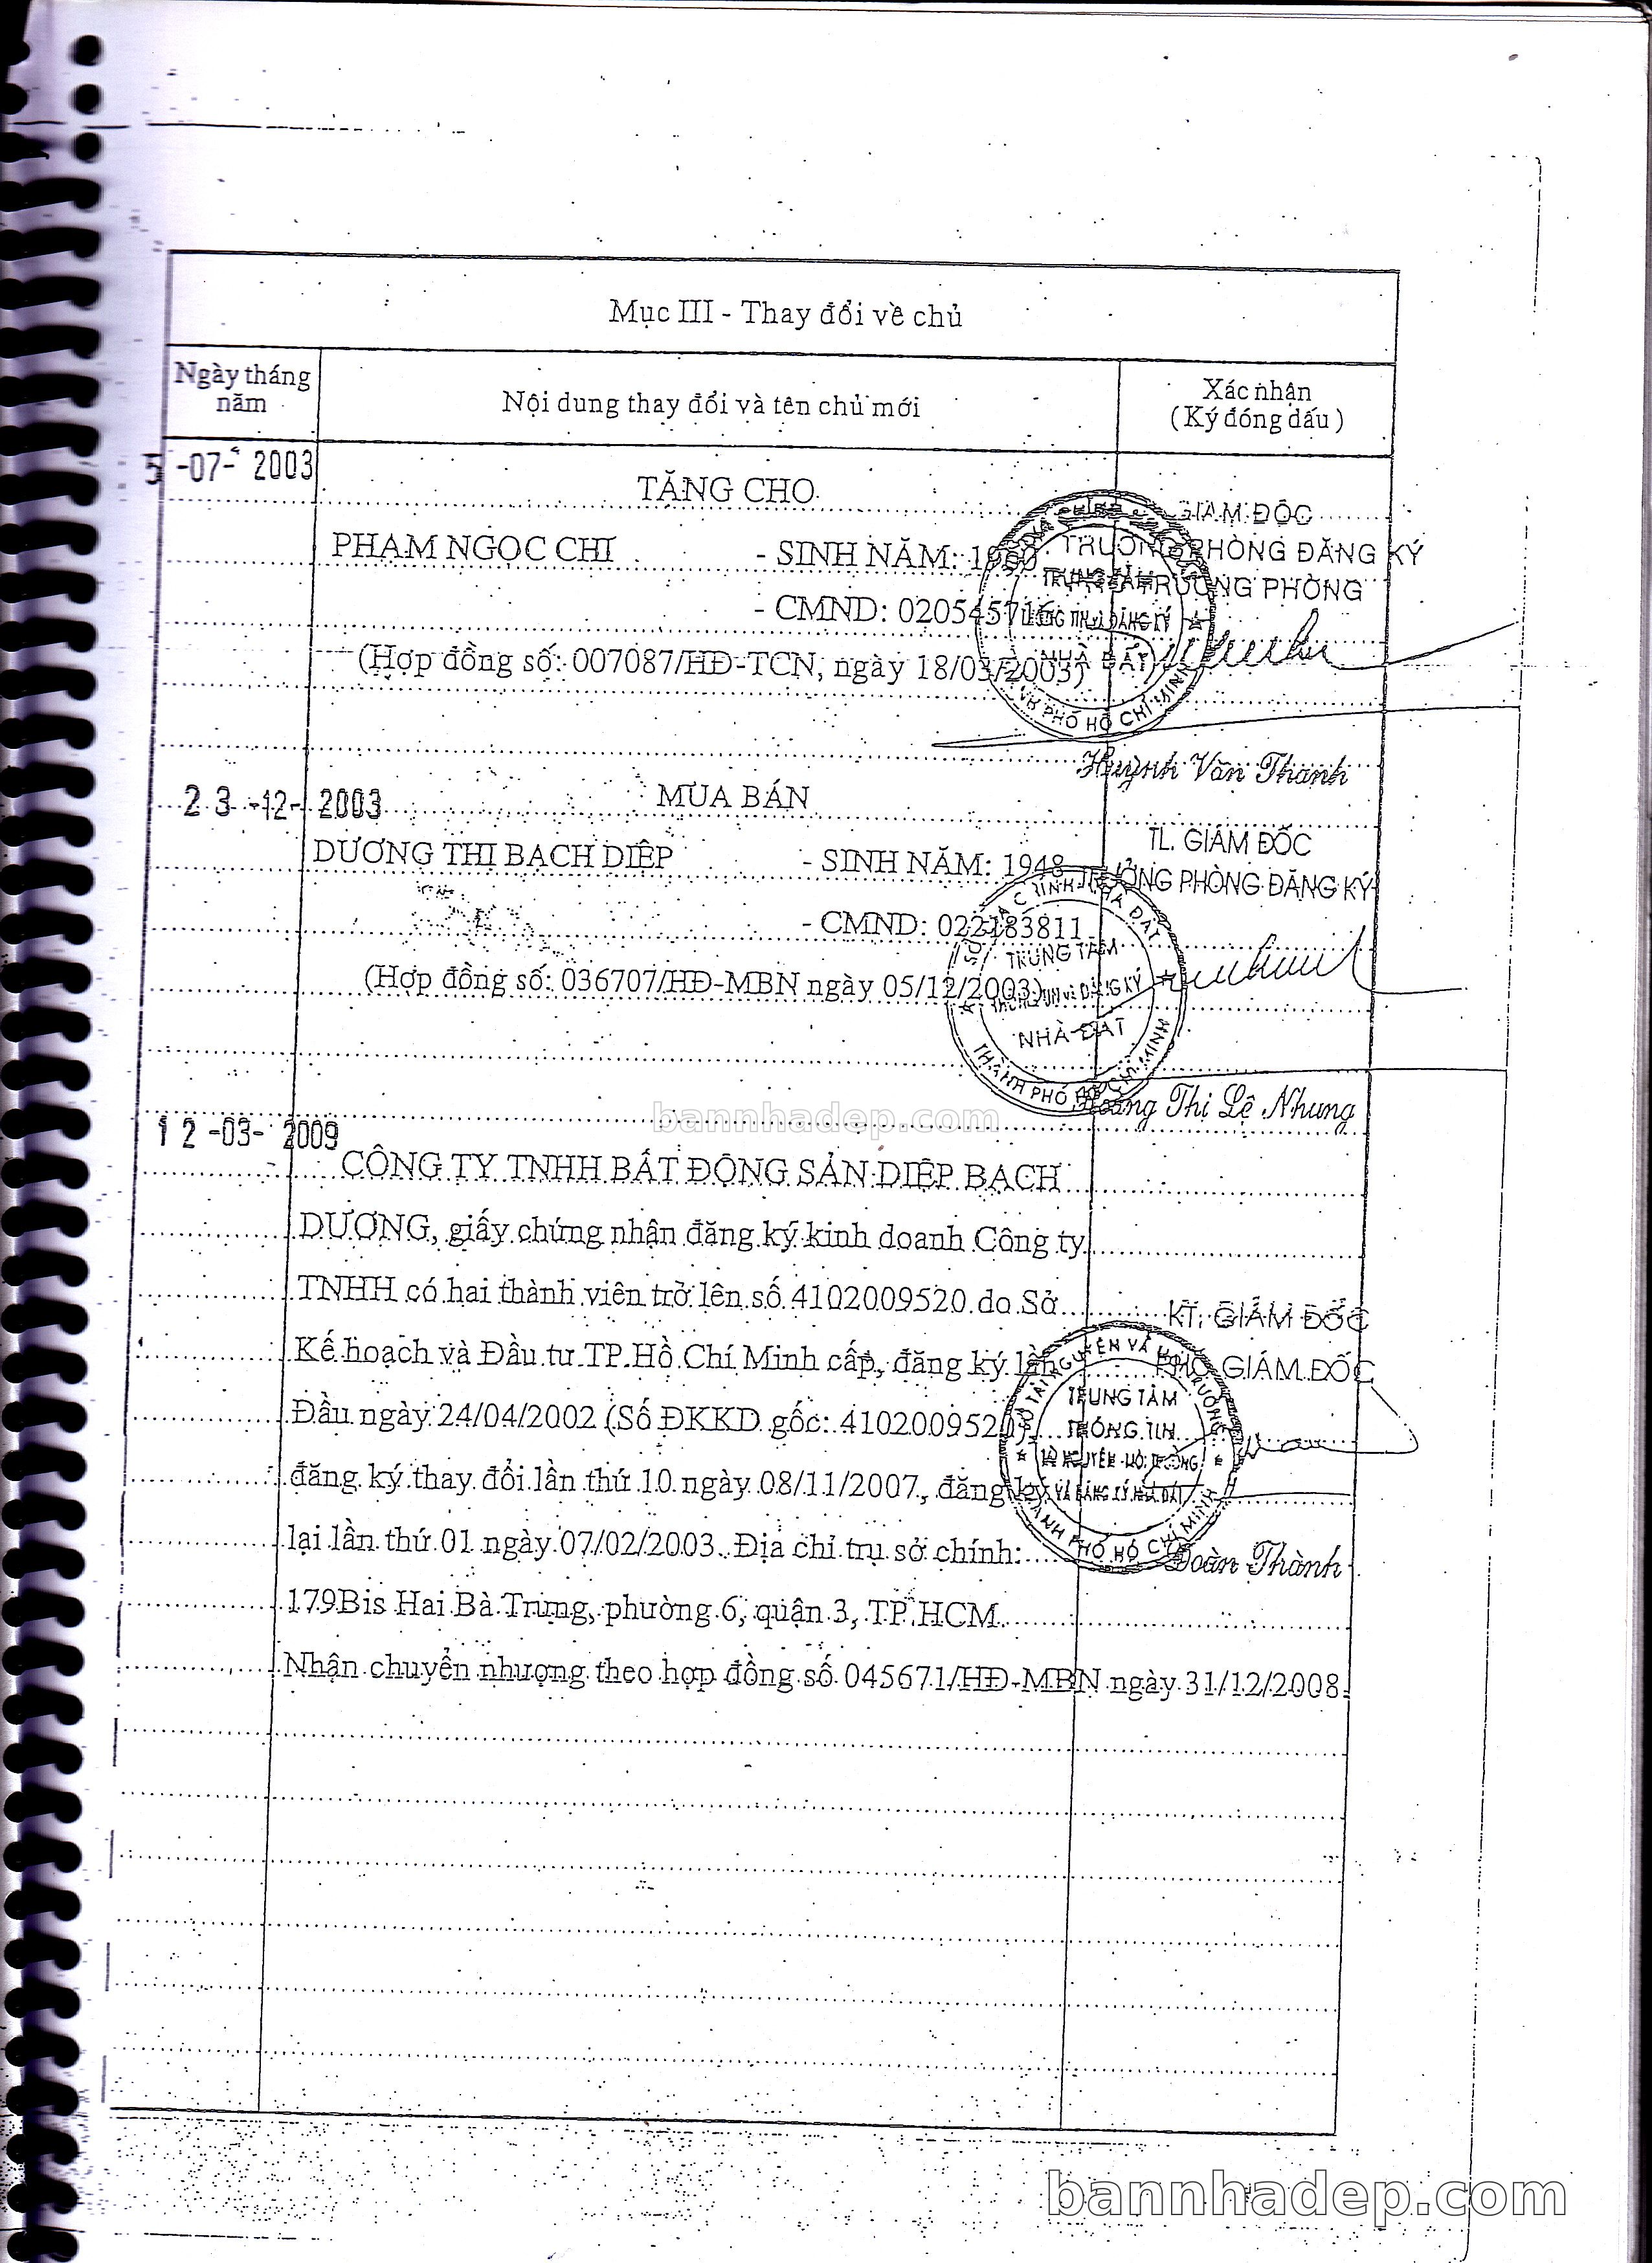 Mục III - Thay đổi về chủ
Ngày tháng năm
Nội dung thay đổi và tên chủ mới
Xác nhận
(Ký đóng dấu)
5 -07- 2003
TẶNG CHO
GIÁM ĐỐC
PHẠM NGỌC CHI - SINH NĂM: 1960
TRƯỞNG PHÒNG ĐĂNG KÝ
TRƯỞNG PHÒNG
- CMND: 020545716
(Hợp đồng số: 007087/HĐ-TCN, ngày 18/03/2003)
NHÀ ĐẤT
PHỐ HỒ CHÍ MINH
Huỳnh Văn Thanh
23 -12- 2003
MUA BÁN
TL. GIÁM ĐỐC
DƯƠNG THỊ BẠCH DIỆP - SINH NĂM: 1948
TRƯỞNG PHÒNG ĐĂNG KÝ
- CMND: 022183811
TRUNG TÂM
(Hợp đồng số: 036707/HĐ-MBN ngày 05/12/2003)
NHÀ ĐẤT
THÀNH PHỐ HỒ CHÍ MINH
Hoàng Thị Lệ Nhung
bannhadep.com
12 -03- 2009
CÔNG TY TNHH BẤT ĐỘNG SẢN DIỆP BẠCH
DƯƠNG, giấy chứng nhận đăng ký kinh doanh Công ty
TNHH có hai thành viên trở lên số 4102009520 do Sở
KT. GIÁM ĐỐC
Kế hoạch và Đầu tư TP.Hồ Chí Minh cấp, đăng ký lần
PHÓ GIÁM ĐỐC
Đầu ngày 24/04/2002 (Số ĐKKD gốc: 4102009520),
TRUNG TÂM
THÔNG TIN
đăng ký thay đổi lần thứ 10 ngày 08/11/2007, đăng ký
lại lần thứ 01 ngày 07/02/2003. Địa chỉ trụ sở chính:
Đoàn Thành
179Bis Hai Bà Trưng, phường 6, quận 3, TP.HCM.
Nhận chuyển nhượng theo hợp đồng số 045671/HĐ-MBN ngày 31/12/2008.
bannhadep.com